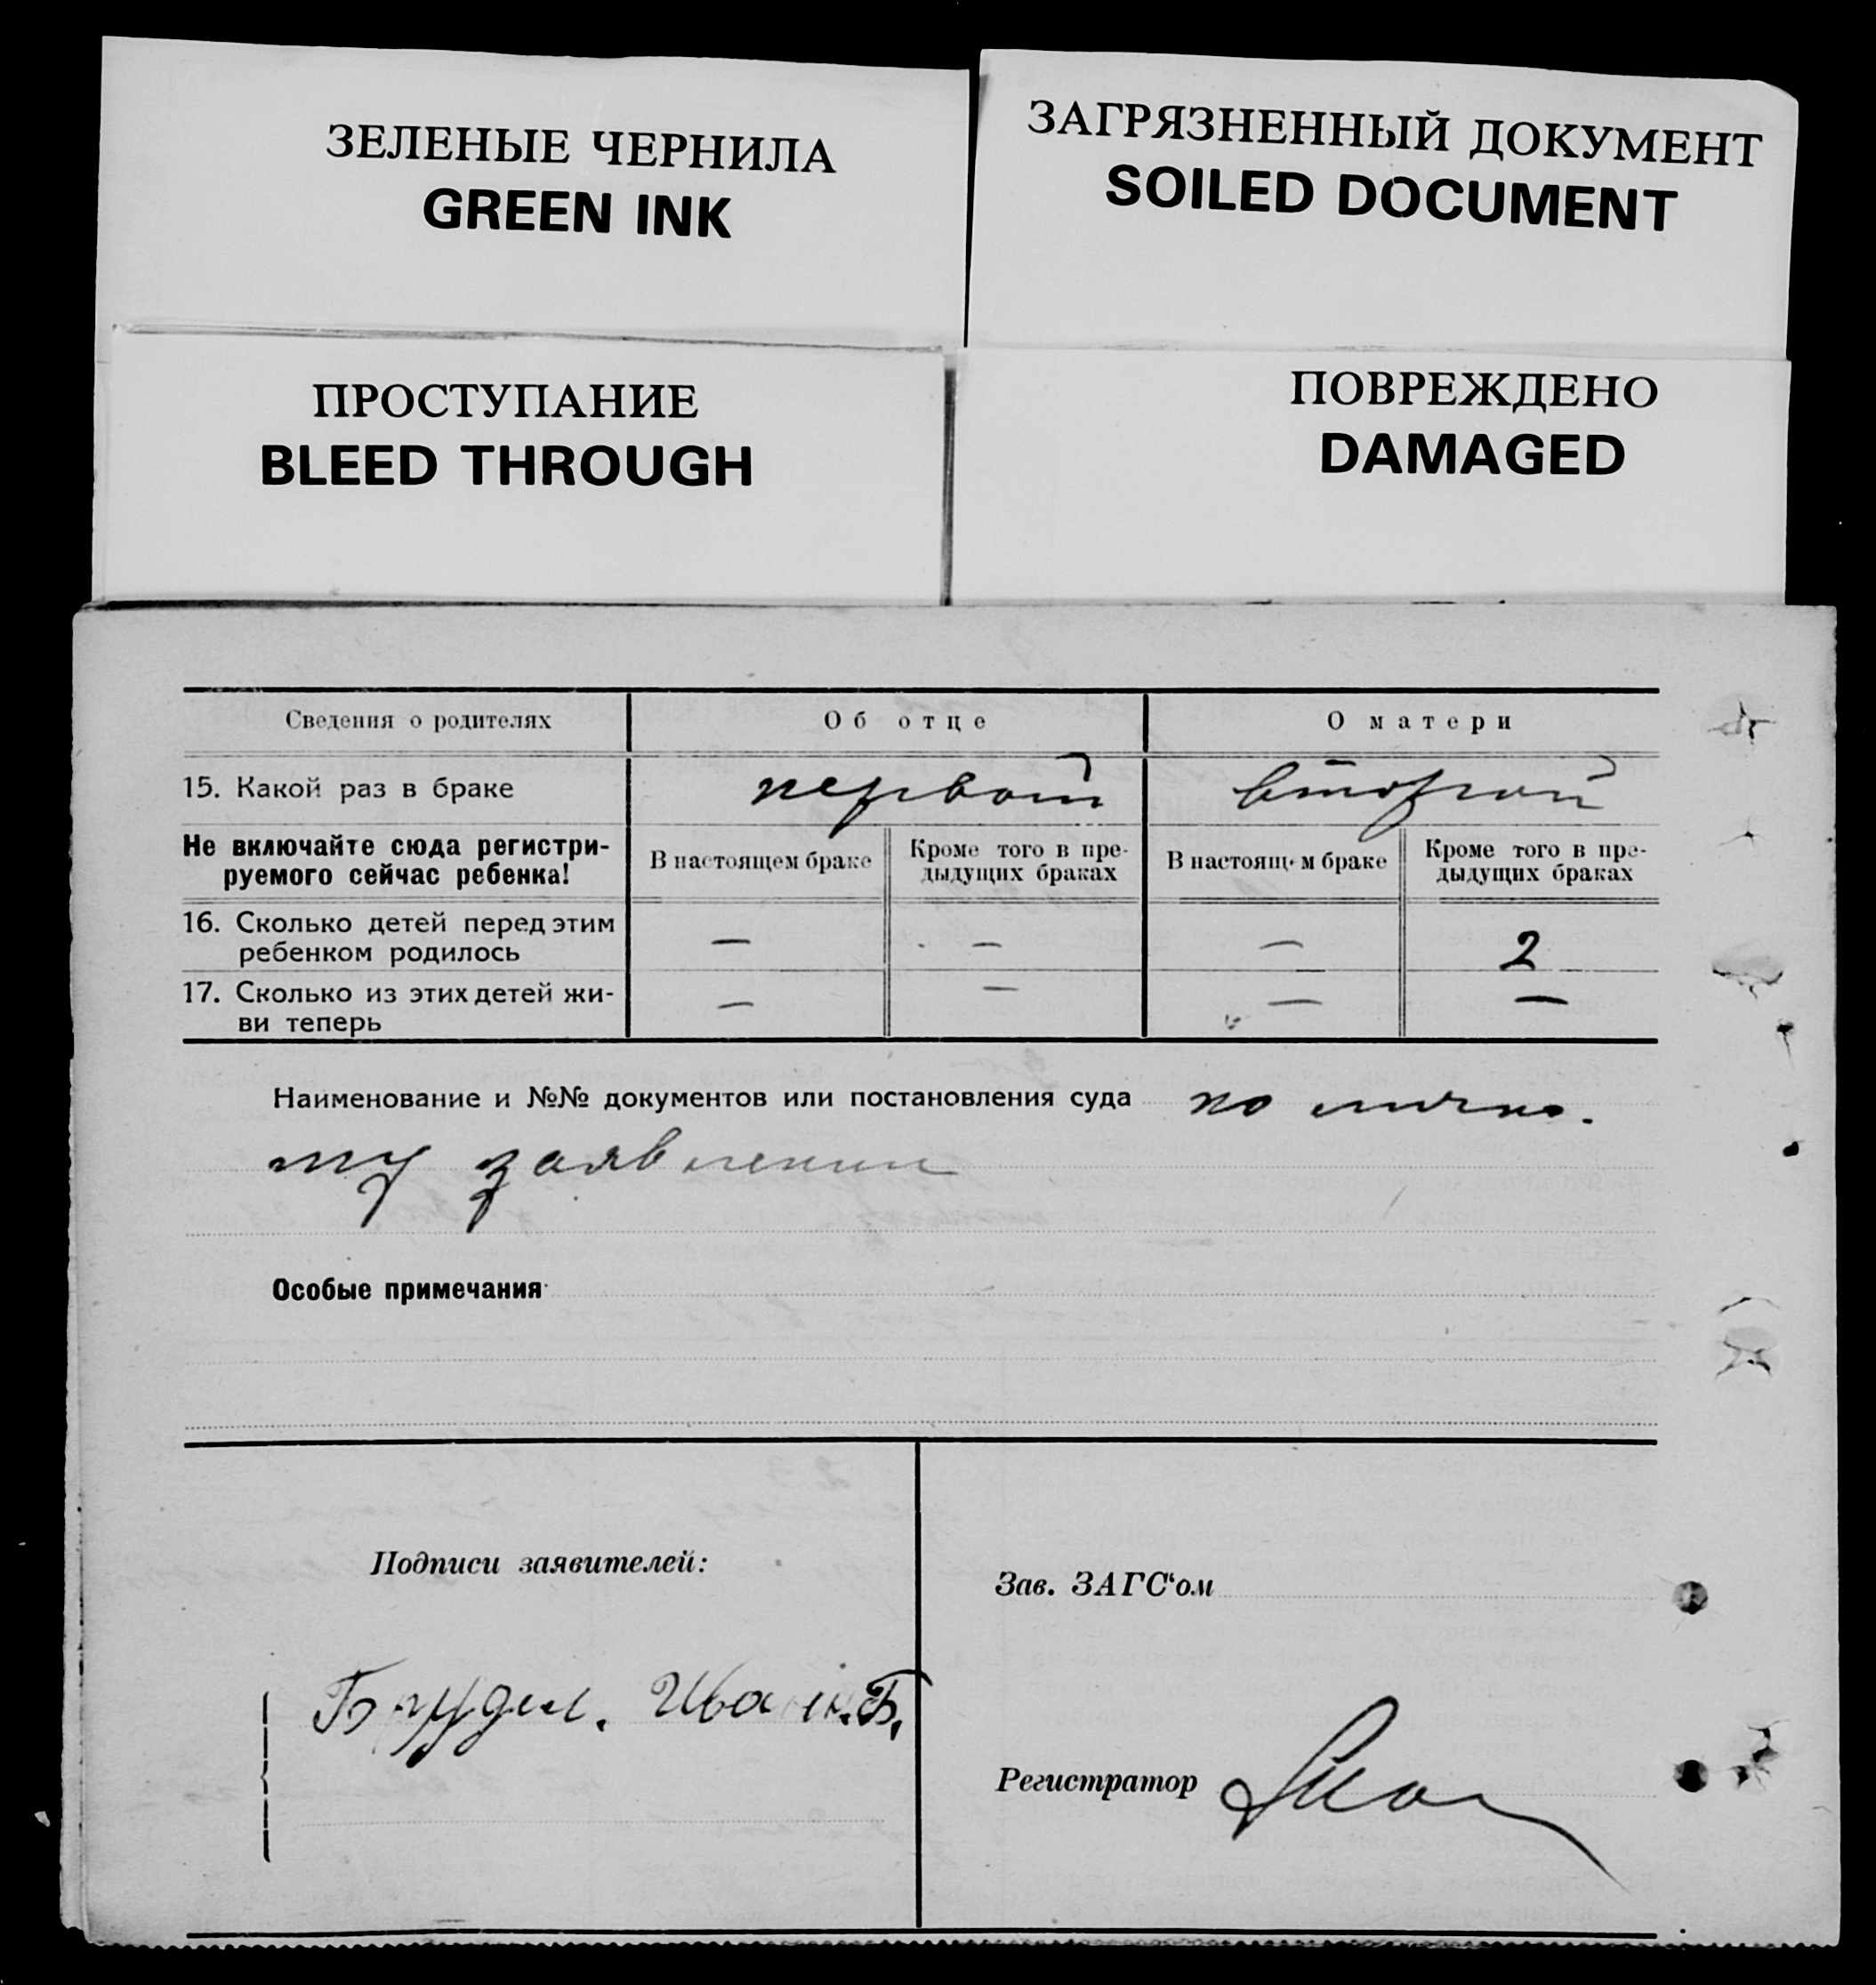 ЗЕЛЕНЫЕ ЧЕРНИЛА
GREEN INK
ЗАГРЯЗНЕННЫЙ ДОКУМЕНТ
SOILED DOCUMENT
ПРОСТУПАНИЕ
BLEED THROUGH
ПОВРЕЖДЕНО
DAMAGED
Сведения о родителях Об отце О матери
15. Какой раз в браке первый второй
Не включайте сюда регистри-
руемого сейчас ребенка!
В настоящем браке
Кроме того в пре-
дыдущих браках
В настоящем браке
Кроме того в пре-
дыдущих браках
16. Сколько детей перед этим
ребенком родилось — — — 2
17. Сколько из этих детей жи-
ви теперь — — — —
Наименование и №№ документов или постановления суда по лично-
му заявлению
Особые примечания
Подписи заявителей:
Зав. ЗАГС'ом
Регистратор